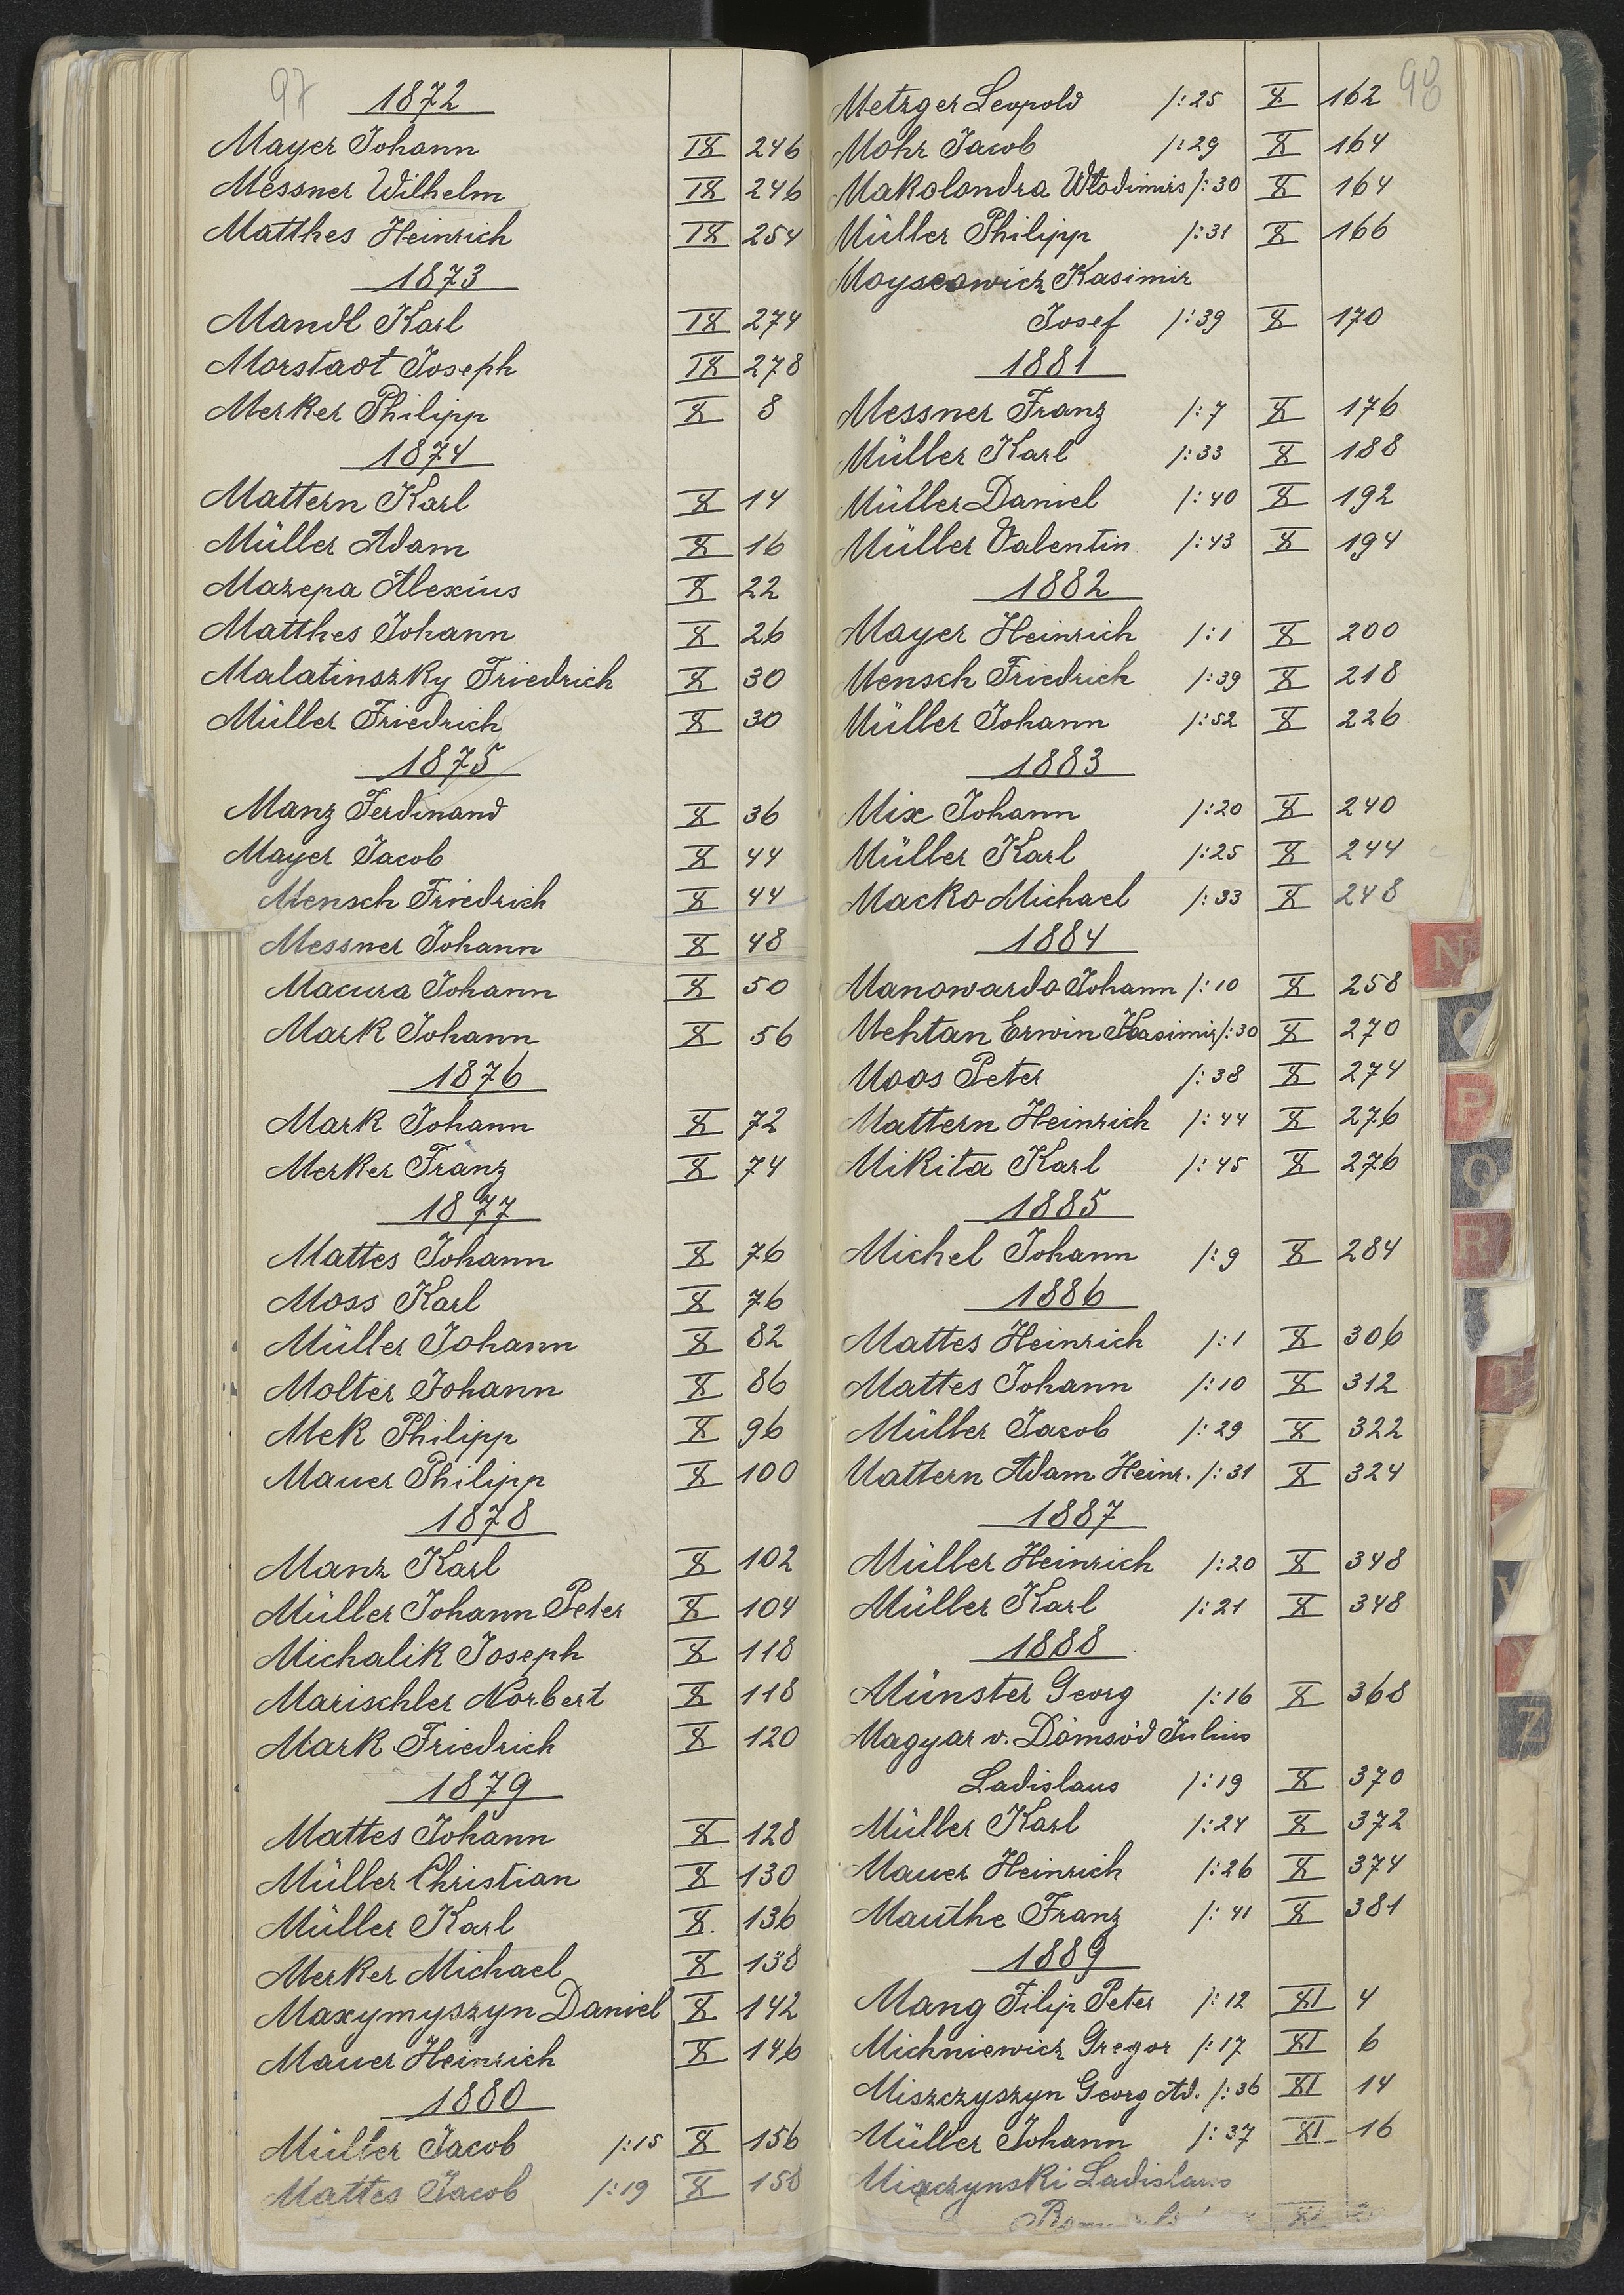 97
1872
Mayer Johann IX 246
Messner Wilhelm IX 246
Matthes Heinrich IX 254
1873
Mandl Karl IX 274
Morstadt Joseph IX 278
Merker Philipp X 8
1874
Mattern Karl X 14
Müller Adam X 16
Mazepa Alexius X 22
Matthes Johann X 26
Malatinszky Friedrich X 30
Müller Friedrich X 30
1875
Manz Ferdinand X 36
Mayer Jacob X 44
Mensch Friedrich X 44
Messner Johann X 48
Macura Johann X 50
Mark Johann X 56
1876
Mark Johann X 72
Merker Franz X 74
1877
Mattes Johann X 76
Moss Karl X 76
Müller Johann X 82
Molter Johann X 86
Mek Philipp X 96
Mauer Philipp X 100
1878
Manz Karl X 102
Müller Johann Peter X 104
Michalik Joseph X 118
Marischler Norbert X 118
Mark Friedrich X 120
1879
Mattes Johann X 128
Müller Christian X 130
Müller Karl X. 136
Merker Michael X 138
Maxymyszyn Daniel X 142
Mauer Heinrich X 146
1880
Müller Jacob /:15 X 156
Mattes Jacob /:19 X 158
98
Metzger Leopold /:25 X 162
Mohr Jacob /:29 X 164
Makolondra Wlodimirs /:30 X 164
Müller Philipp /:31 X 166
Kasimir
Josef /:39 X 170
1881
Messner Franz /:7 X 176
Müller Karl /:33 X 188
Müller Daniel /:40 X 192
Müller Valentin /:43 X 194
1882
Mayer Heinrich /:1 X 200
Mensch Friedrich /:39 X 218
Müller Johann /:52 X 226
1883
Mix Johann /:20 X 240
Müller Karl /:25 X 244
Macko Michael /:33 X 248
1884
Manowarda Johann /:10 X 258
Mehtan Erwin Kasimir /:30 X 270
Moos Peter /:38 X 274
Mattern Heinrich /:44 X 276
Mikita Karl /:45 X 276
1885
Michel Johann /:9 X 284
1886
Mattes Heinrich /:1 X 306
Mattes Johann /:10 X 312
Müller Jacob /:29 X 322
Mattern Adam Heinr. /:31 X 324
1887
Müller Heinrich /:20 X 348
Müller Karl /:21 X 348
1888
Münster Georg /:16 X 368
Magyar v. Dömsöd Julius
Ladislaus /:19 X 370
Müller Karl /:24 X 372
Mauer Heinrich /:26 X 374
Mauthe Franz /:41 X 381
1889
Mang Filip Peter /:12 XI 4
Michniewicz Gregor /:17 XI 6
Miszczyszyn Georg Ad. /:36 XI 14
Müller Johann /:37 XI 16
Miączynski Ladislaus
XI
N
O
P
Q
R
V
Z